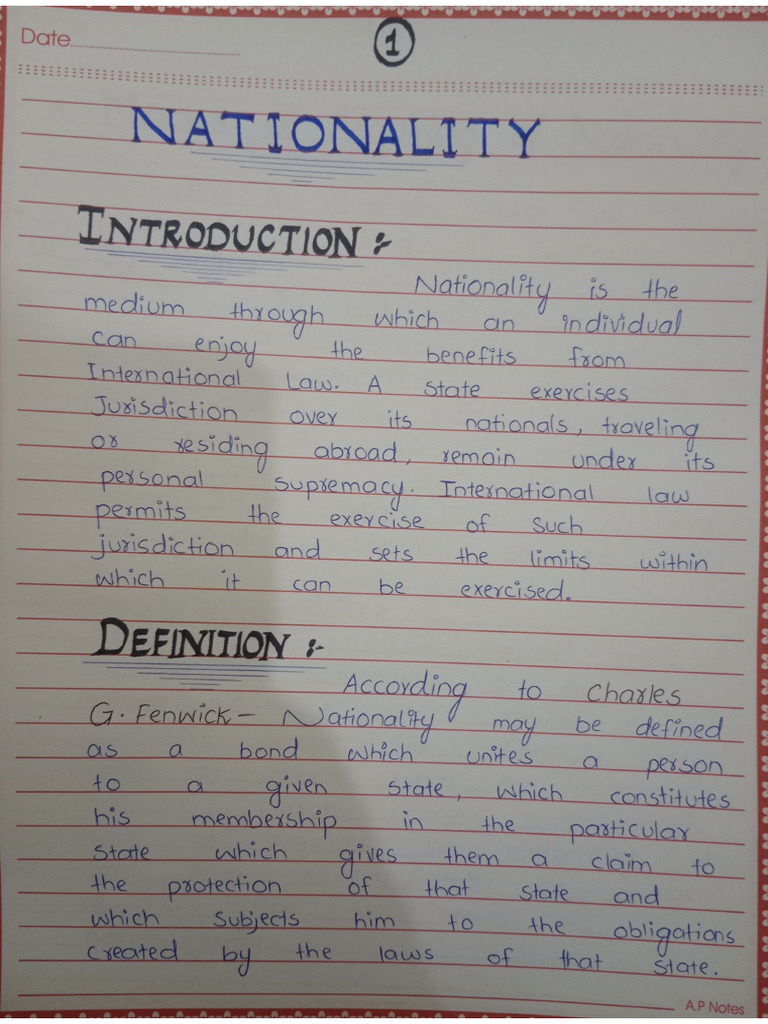 Date
1
NATIONALITY
INTRODUCTION :-
Nationality is the
medium through which an individual
can enjoy the benefits from
International Law. A state exercises
Jurisdiction over its nationals, traveling
or residing abroad, remain under its
personal supremacy. International law
permits the exercise of such
jurisdiction and sets the limits within
which it can be exercised.
DEFINITION :-
According to Charles
G. Fenwick - Nationality may be defined
as a bond which unites a person
to a given state, which constitutes
his membership in the particular
state which gives them a claim to
the protection of that state and
which subjects him to the obligations
created by the laws of that state.
A.P Notes